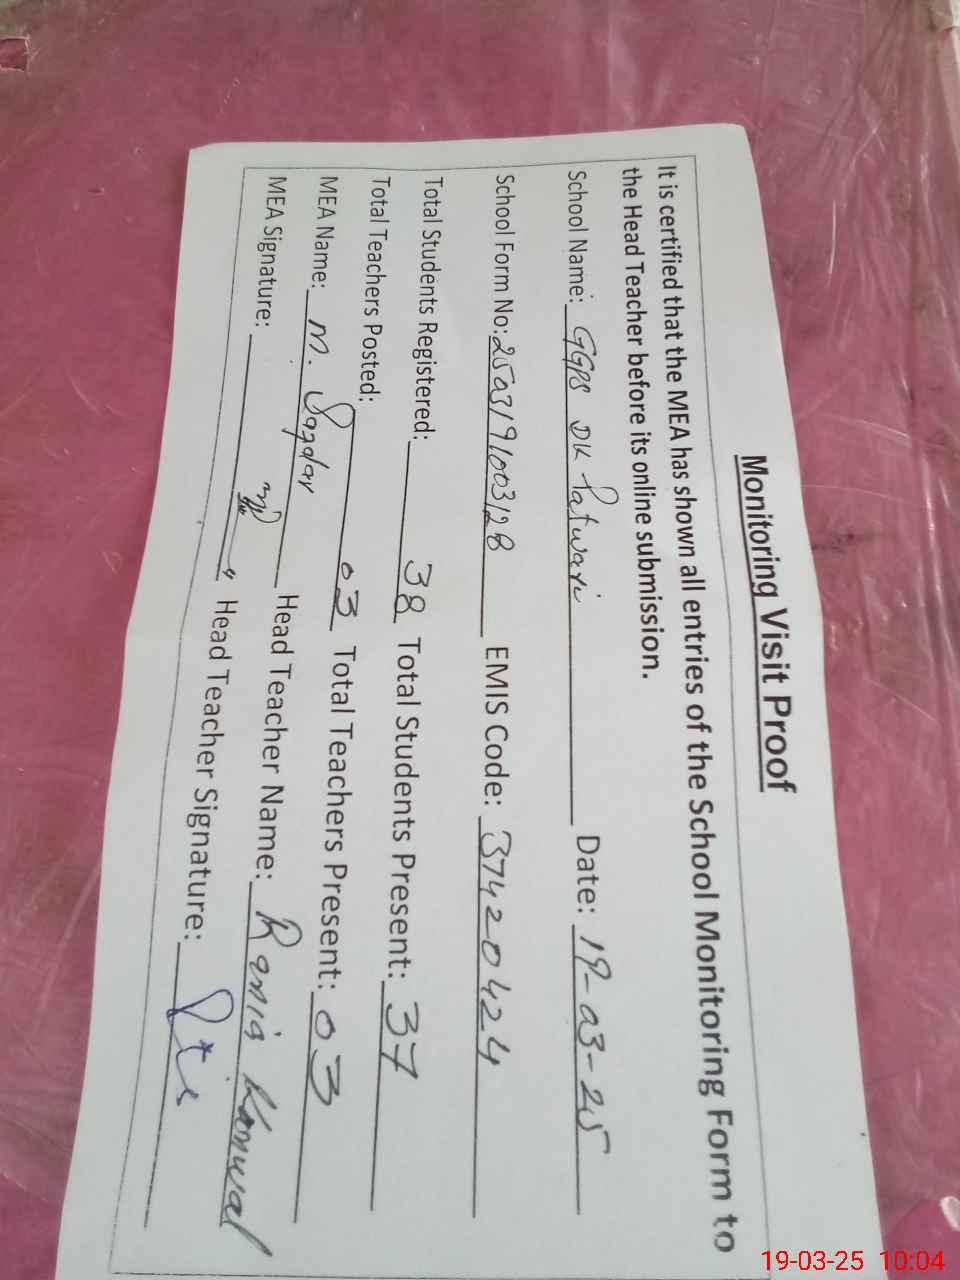 Monitoring Visit Proof
It is certified that the MEA has shown all entries of the School Monitoring Form to
the Head Teacher before its online submission.
School Name: GGPS DK Patwari Date: 19-03-25
School Form No: 2503191003128 EMIS Code: 37420424
Total Students Registered: 38 Total Students Present: 37
Total Teachers Posted: 03 Total Teachers Present: 03
MEA Name: M. Head Teacher Name: Kanwal
MEA Signature: Head Teacher Signature:
19-03-25 10:04